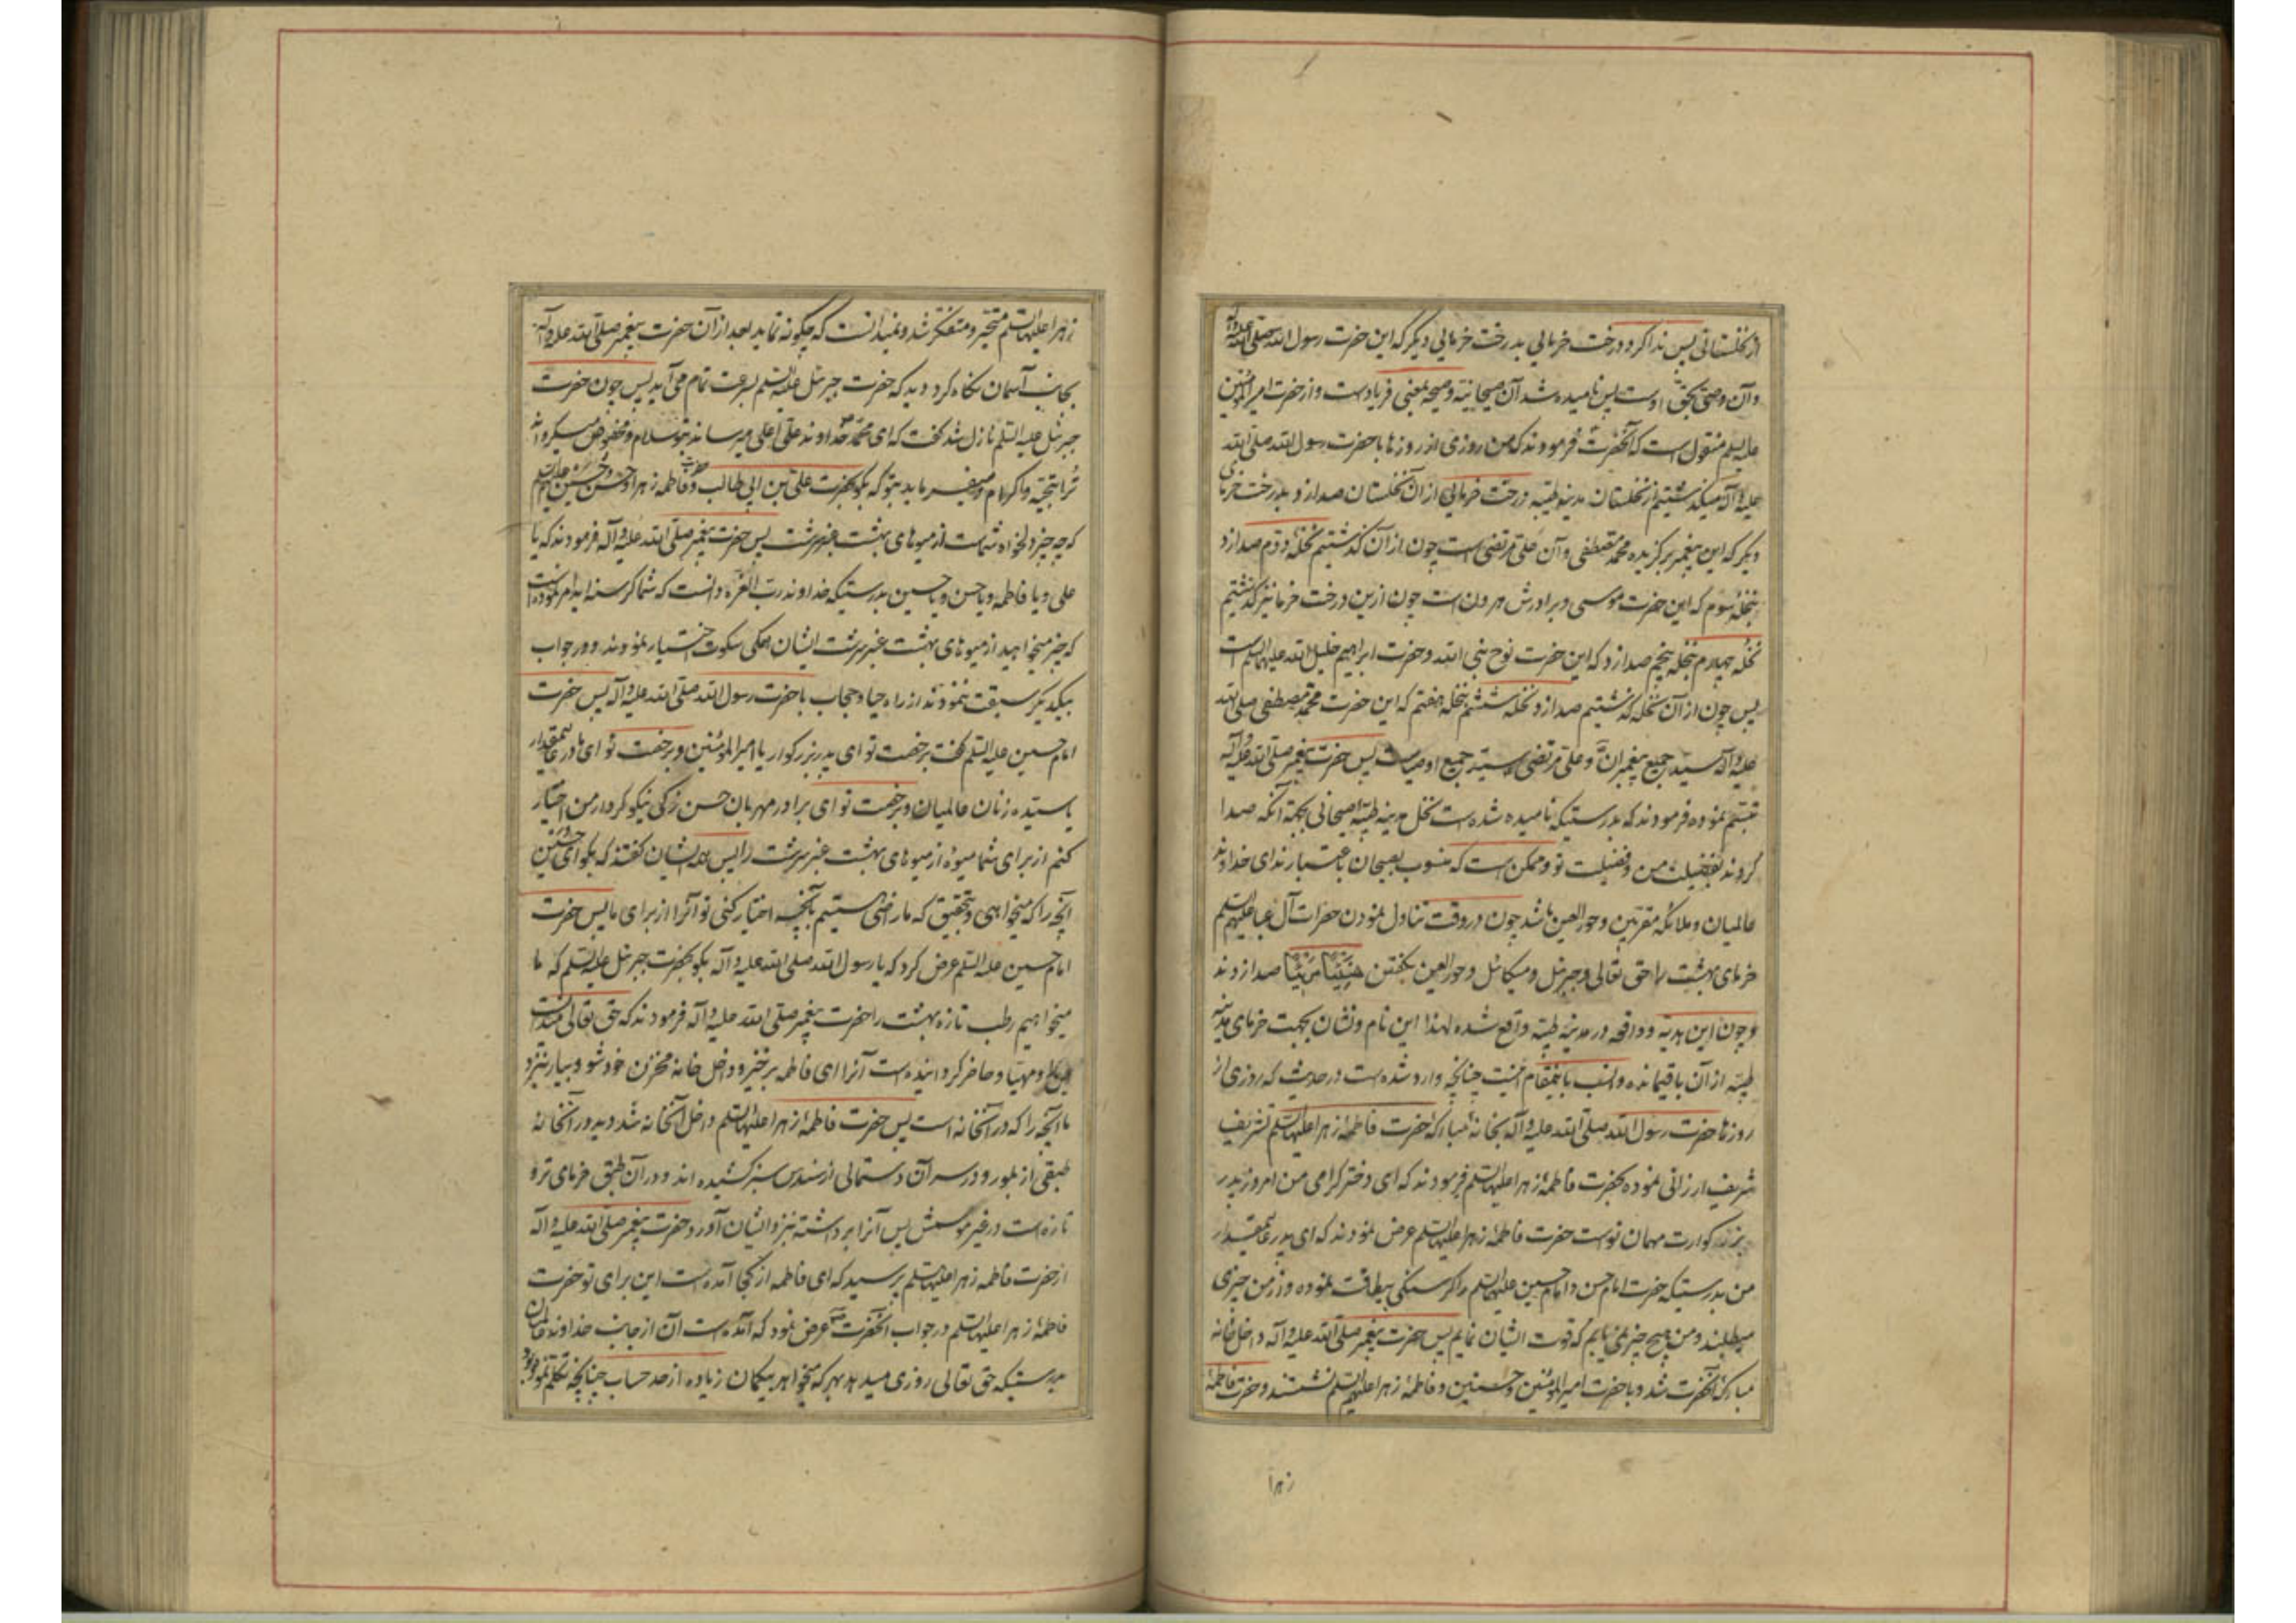 از نخلستانی پس ندا کرد درخت خرمایی بدرخت خرمایی دیگر که این حضرت رسول الله صلی الله علیه وآله
وآن وصی بحق اوست پس نامیده شد آن صیحانیه و صیحه بمعنی فریادست و از حضرت امیرالمؤمنین
علیه السلم منقولست که آنحضرت فرمودند که من روزی از روزها با حضرت رسول الله صلی الله
علیه وآله میگذشتیم از نخلستان مدینه طیبه درخت خرمایی از آن نخلستان صدا زد بدرخت خرمای
دیگر که این پیغمبر برگزیده محمد مصطفی وآن علی مرتضی است چون از آن گذشتیم نخلهٔ دوم صدا زد
بنخلهٔ سوم که این حضرت موسی و برادرش هرون است چون ازین درخت خرما نیز گذشتیم
نخله چهارم بنخله پنجم صدا زد که این حضرت نوح نبی الله و حضرت ابراهیم خلیل الله علیهما السلم است
پس چون از آن نخله گذشتیم صدا زد نخله ششم بنخله هفتم که این حضرت محمد مصطفی صلی الله
علیه وآله سید جمیع پیغمبران و علی مرتضی سید جمیع اوصیاست پس حضرت پیغمبر صلی الله علیه وآله
تبسم نموده فرمودند که بدرستیکه نامیده شده است نخل مدینه طیبه صیحانی بجهة آنکه صدا
کردند بفضیلت من و فضیلت تو و ممکن است که منسوب بصیحان باعتبار ندای خداوند
عالمیان و ملائکه مقربین و حورالعین باشد چون در وقت تناول نمودن حضرات آل عبا علیهم السلم
خرمای بهشت را حق تعالی و جبرئل و میکائل و حورالعین بگفتن هنیئا مریئا صدا زدند
و چون این هدیه و واقعه در مدینه طیبه واقع شده لهذا این نام و نشان بجهت خرمای مدینه
طیبه از آن باقیمانده و انسب باینمقام اینست چنانچه وارد شده است در حدیث که روزی از
روزها حضرت رسول الله صلی الله علیه وآله بخانهٔ مبارکه حضرت فاطمهٔ زهرا علیها السلم تشریف
شریف ارزانی نموده بحضرت فاطمهٔ زهرا علیها السلم فرمودند که ای دختر گرامی من امروز پدر
بزرگوارت مهمان توست حضرت فاطمهٔ زهرا علیها السلم عرض نمودند که ای پدر عالیمقدار
من بدرستیکه حضرت امام حسن و امام حسین علیهما السلم را گرسنگی بیطاقت نموده و از من چیزی
میطلبند و من هیچ چیز نمی یابم که قوت ایشان نمایم پس حضرت پیغمبر صلی الله علیه وآله داخل خانه
مبارک آنحضرت شد و با حضرت امیرالمؤمنین و حسنین و فاطمهٔ زهرا علیهم السلم نشستند و حضرت فاطمهٔ
زهرا
زهرا علیها السلم متحیر و متفکر شد و نمیدانست که چگونه نماید بعد از آن حضرت پیغمبر صلی الله علیه وآله
بجانب آسمان نگاه کرد دید که حضرت جبرئل علیه السلم بسرعت تمام می آید پس چون حضرت
جبرئل علیه السلم نازل شد گفت که ای محمد خداوند علی اعلی میرساند بتو سلام و مخصوص میگرداند
ترا بتحیة و اکرام و میفرماید بتو که بگو بحضرت علی بن ابی طالب و فاطمه زهرا و حسن و حسین علیهم السلم
که چه چیز دلخواه شماست از میوهای بهشت عنبر سرشت پس حضرت پیغمبر صلی الله علیه وآله فرمودند که یا
علی و یا فاطمه و یا حسن و یا حسین بدرستیکه خداوند رب العزه دانست که شما گرسنه اید امر نموده است
که چه چیز میخواهید از میوهای بهشت عنبر سرشت ایشان همگی سکوت اختیار نمودند و در جواب
بیکدیگر سبقت ننمودند از راه حیا و حجاب با حضرت رسول الله صلی الله علیه وآله پس حضرت
امام حسین علیه السلم گفت برخصت تو ای پدر بزرگوار یا امیرالمؤمنین و برخصت تو ای مادر عالیمقدار
یا سیده زنان عالمیان و برخصت تو ای برادر مهربان حسن زکی نیکو کردار من اختیار
کنم از برای شما میوهٔ از میوهای بهشت عنبر سرشت را پس همه ایشان گفتند که بگو ای حسین
آنچه را که میخواهی و بتحقیق که ما راضی هستیم بآنچه اختیار کنی تو آنرا از برای ما پس حضرت
امام حسین علیه السلم عرض کرد که یا رسول الله صلی الله علیه وآله بگو بحضرت جبرئل علیه السلم که ما
میخواهیم رطب تازه بهشت را حضرت پیغمبر صلی الله علیه وآله فرمودند که حق تعالی میدانست
و مهیا و حاضر گردانیده است آنرا ای فاطمه برخیز و داخل خانه مخزن خود شو و بیار بنزد
ما آنچه را که در آنخانه است پس حضرت فاطمهٔ زهرا علیها السلم داخل آنخانه شد و دید در آنخانه
طبقی از بلور و در سر آن دستمالی از سندس سبز کشیده اند و در آن طبق خرمای تر و
تازه است در غیر موسمش پس آنرا برداشته بنزد ایشان آورد حضرت پیغمبر صلی الله علیه وآله
از حضرت فاطمه زهرا علیها السلم پرسید که ای فاطمه از کجا آمده است این برای تو حضرت
فاطمهٔ زهرا علیها السلم در جواب آنحضرت عرض نمود که آمده است آن از جانب خداوند عالمیان
بدرستیکه حق تعالی روزی میدهد بهر که میخواهد بیگمان زیاده از حد حساب چنانچه تکلم نموده بود